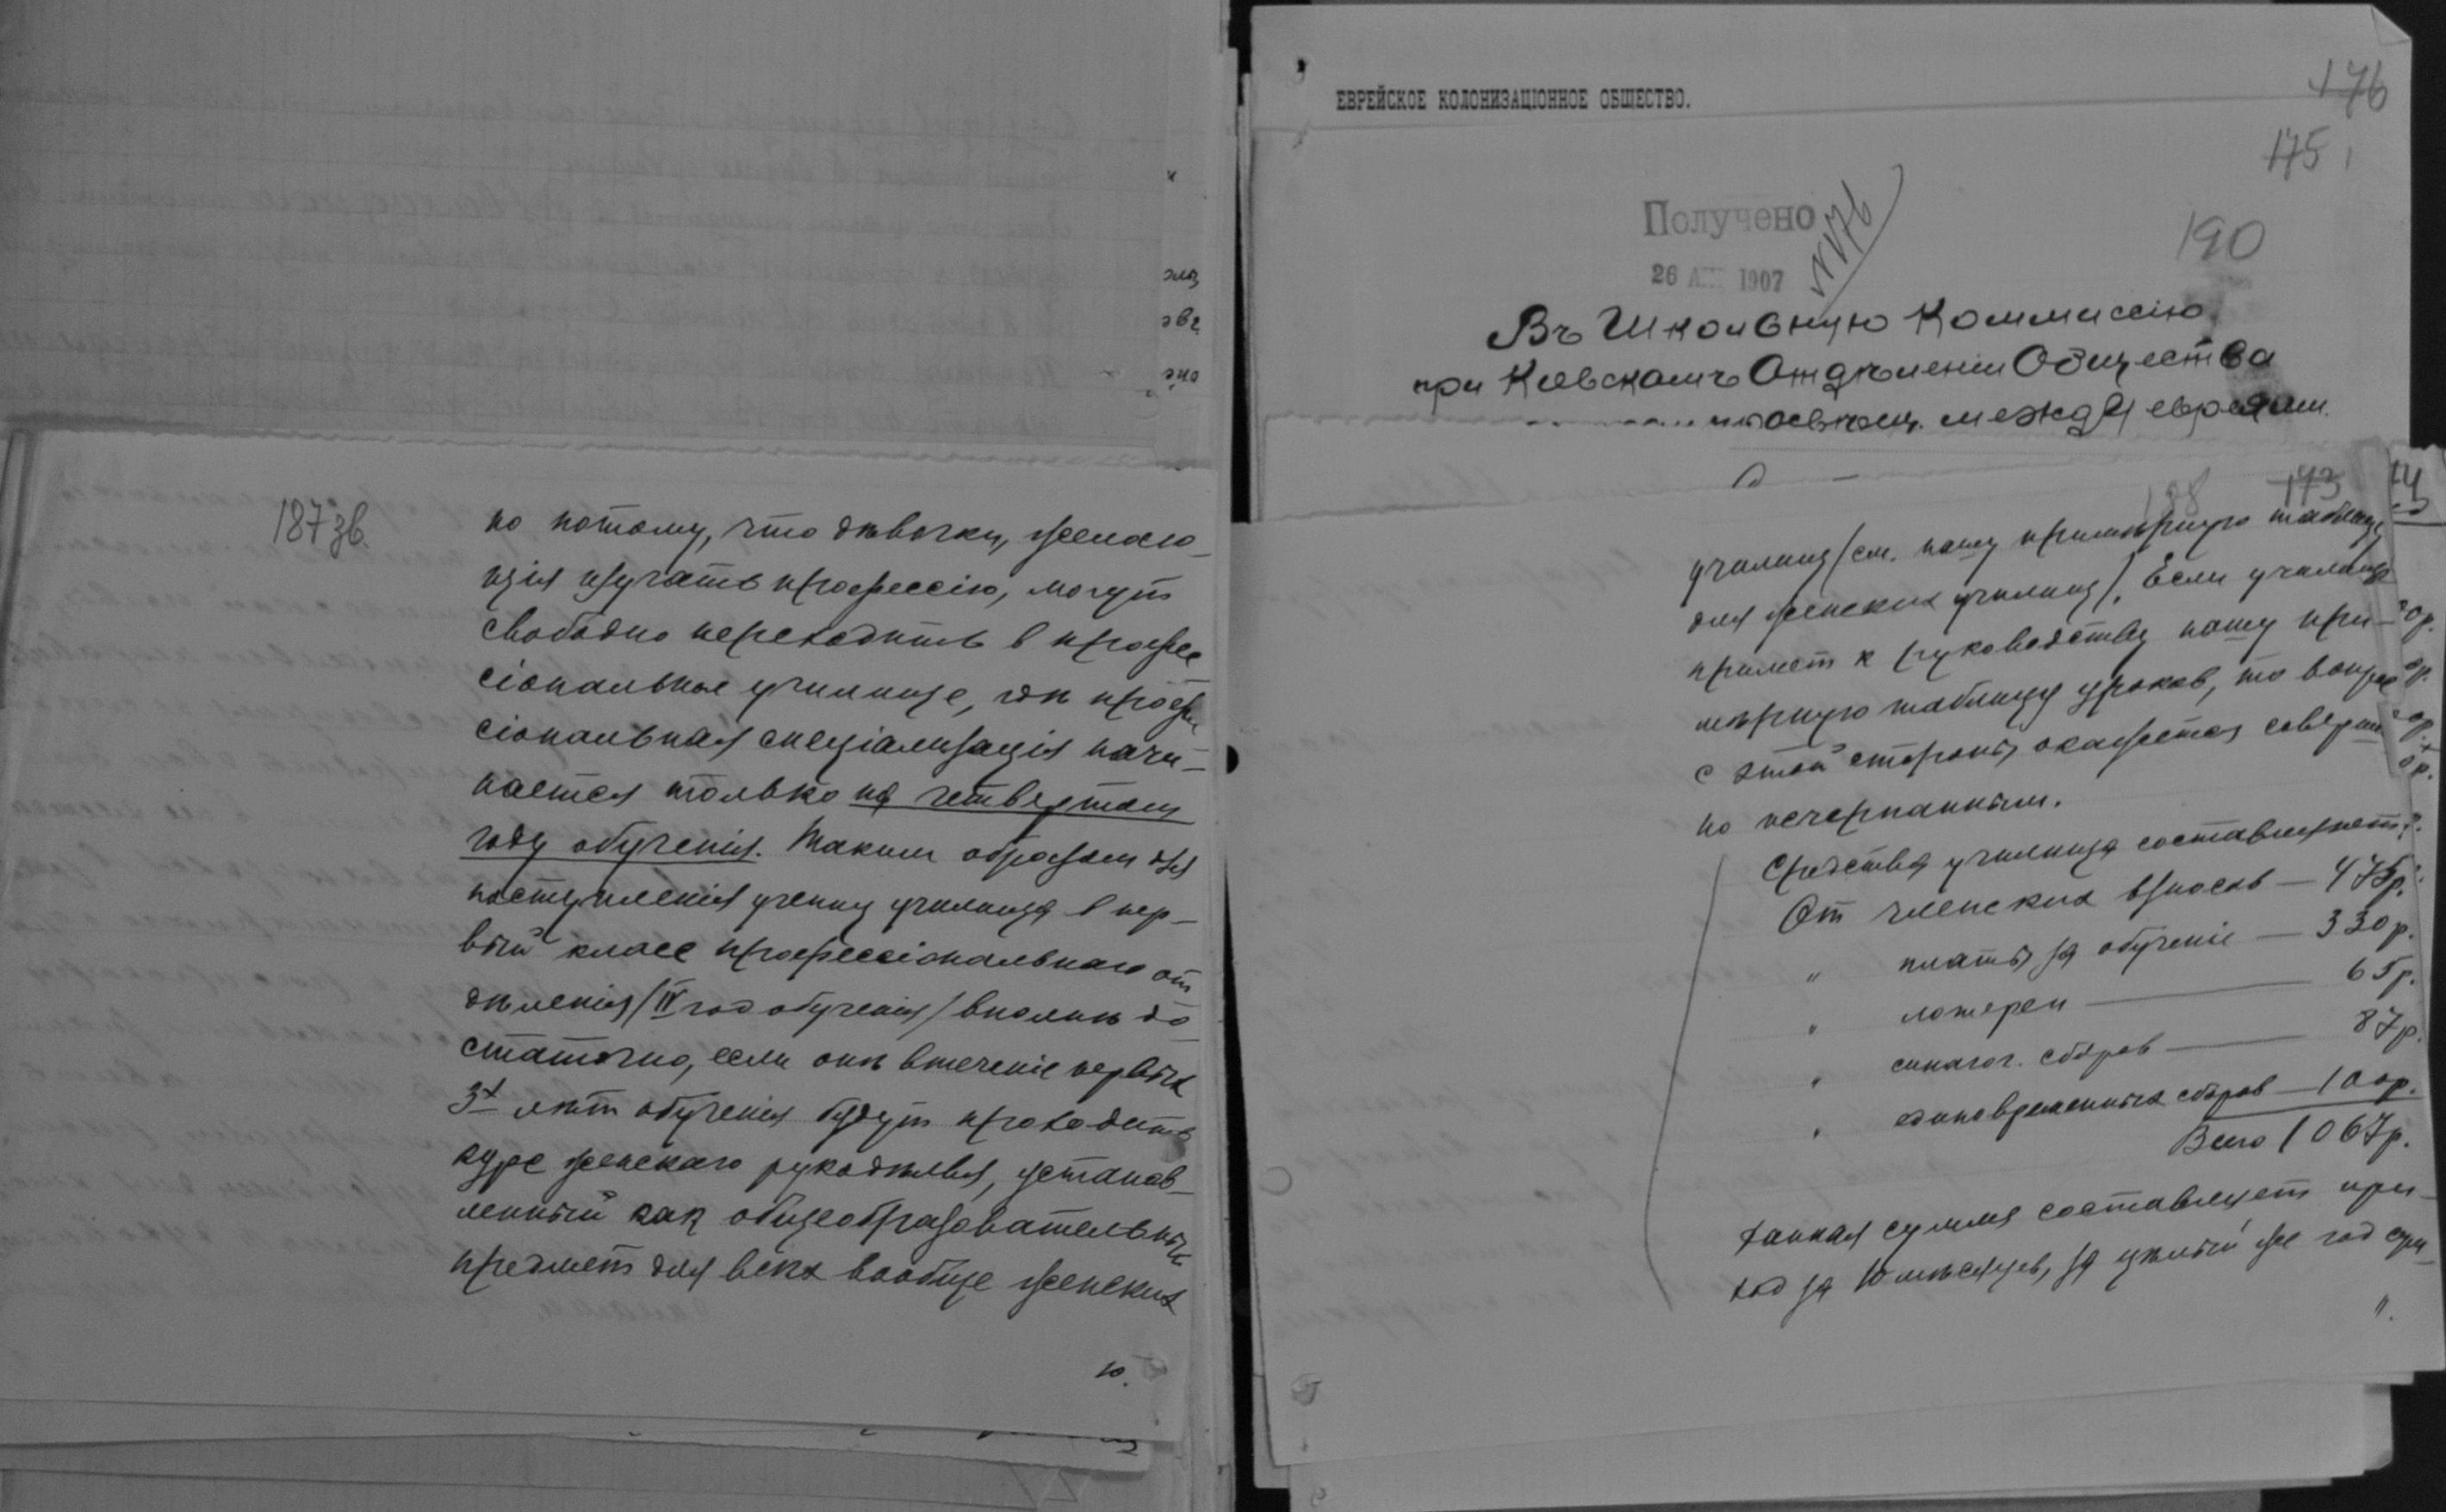 187 зв.
но потому, что дѣвочки, желаю-
щія изучать профессію, могут
свободно переходить в профес
сіональное училище, гдѣ профес
сіональная спеціализація начи-
нается только на четвертом
году обученія. Таким образом для
поступленія учениц училища в пер-
вый класс профессіональнаго от
дѣленія (IV год обученія) вполнѣ до
статочно, если онѣ втеченіе первых
3х лѣт обученія будут проходить
курс женскаго рукодѣлья, установ-
ленный как общеобразовательный
предмет для всѣх вообще женских
10.
ЕВРЕЙСКОЕ КОЛОНИЗАЦІОННОЕ ОБЩЕСТВО.
176
175
190
Получено
26 1907
№ 176
Въ Школьную Коммиссію
при Кіевскомъ Отдѣленіи Общества
просвѣщ. между евреями.
188
173
училищ (см. нашу примѣрную таблицу
для женских училищ). Если училище
примет к руководству нашу при-
мѣрную таблицу уроков, то вопрос
с этой стороны окажется совершен
но исчерпанным.
Средства училища составляют:
От членских взносов — 475р.
" платы за обученіе — 330р.
" лотереи — 65р.
" синагог. сборов — 87р.
" единовременных сборов — 100р.
Всего 1067р.
данная сумма составляет при-
ход за 10 мѣсяцев, за цѣлый же год сум-
11.